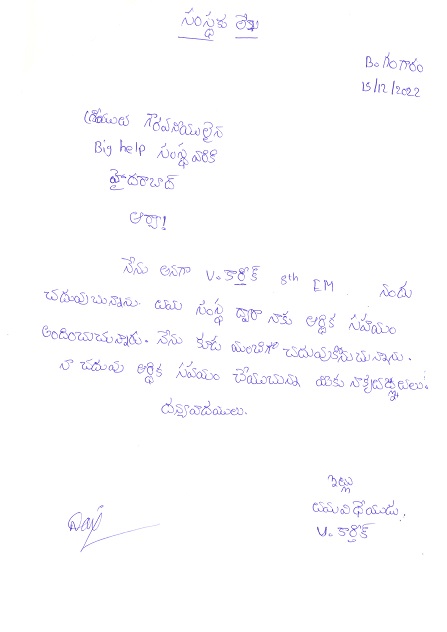 సంస్థకు లేఖ
B. గంగారం
15/12/2022
శ్రీయుత గౌరవనీయులైన
Big help సంస్థ వారికి
హైదరాబాద్
ఆర్యా!
నేను అనగా V. కార్తీక్ 8th EM నందు
చదువుచున్నాను. మీ సంస్థ ద్వారా నాకు ఆర్థిక సహయం
అందించుచున్నారు. నేను కూడ మంచిగా చదువుకొనుచున్నాను.
నా చదువు ఆర్థిక సహయం చేయుచున్నా మీకు నా కృతజ్ఞతలు.
ధన్యవాదములు.
ఇట్లు
మీ విధేయుడు.
V. కార్తీక్